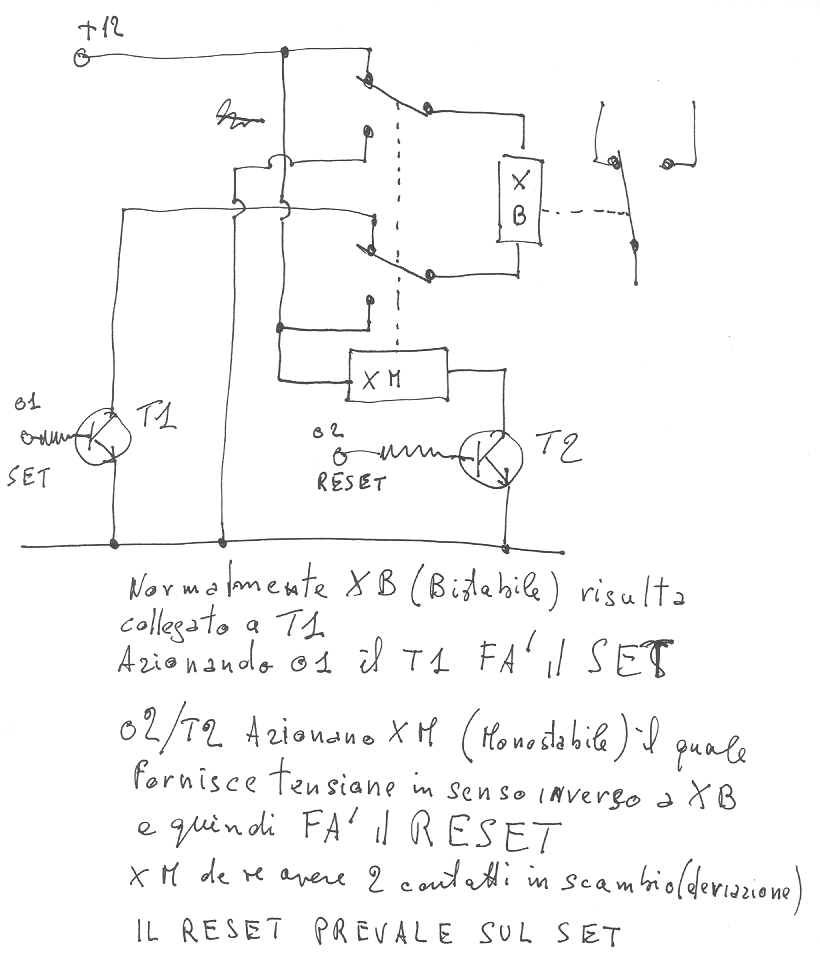 +12
X
B
01
T1
SET
XM
02
T2
RESET
Normalmente XB (Bistabile) risulta
collegato a T1
Azionando 01 il T1 FA' il SET
02/T2 Azionano XM (Monostabile) il quale
fornisce tensione in senso inverso a XB
e quindi FA' il RESET
XM deve avere 2 contatti in scambio (deviazione)
IL RESET PREVALE SUL SET